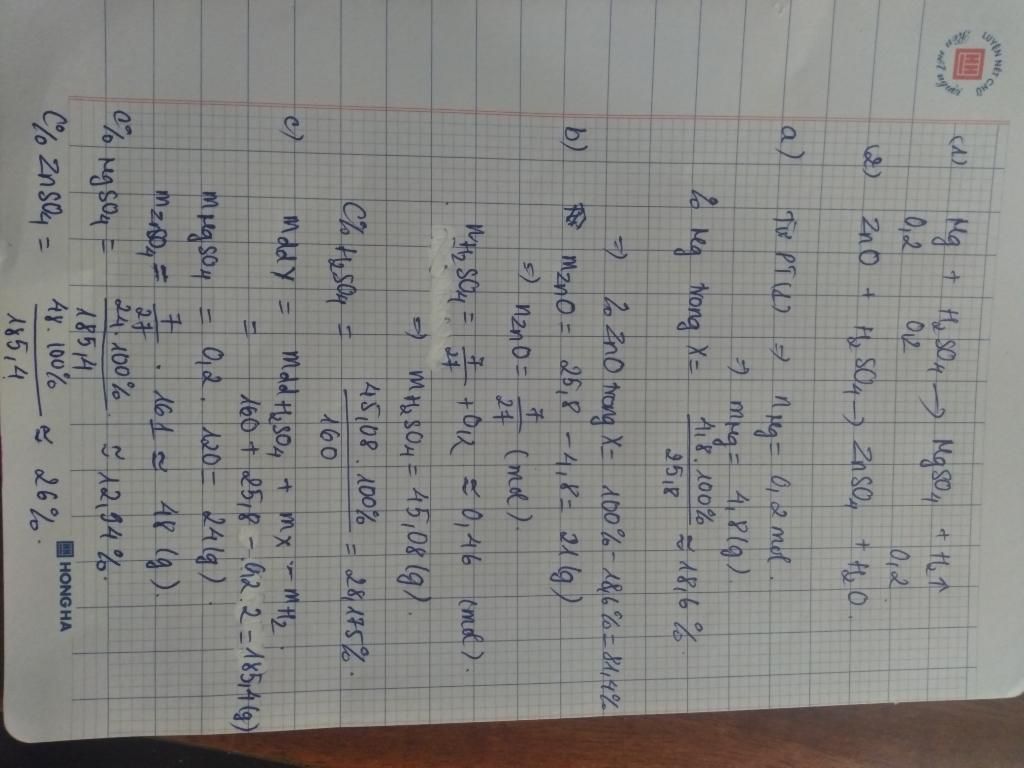 LUYỆN NÉT CHỮ
Rèn nết người
(1) Mg + H2SO4 → MgSO4 + H2↑
0,2 0,2 0,2
(2) ZnO + H2SO4 → ZnSO4 + H2O
a) Từ PT(1) ⇒ nMg = 0,2 mol.
⇒ mMg = 4,8 (g).
% Mg trong X = 4,8 . 100% / 25,8 ≈ 18,6 %
⇒ % ZnO trong X = 100% - 18,6% = 81,4%
b) mZnO = 25,8 - 4,8 = 21 (g)
⇒ nZnO = 7/27 (mol)
nH2SO4 = 7/27 + 0,2 ≈ 0,46 (mol).
⇒ mH2SO4 = 45,08 (g).
C% H2SO4 = 45,08 . 100% / 160 = 28,175%.
c) mddY = mddH2SO4 + mX - mH2.
= 160 + 25,8 - 0,2 . 2 = 185,4 (g)
mMgSO4 = 0,2 . 120 = 24 (g)
mZnSO4 = 7/27 . 161 ≈ 48 (g).
C% MgSO4 = 24 . 100% / 185,4 ≈ 12,94 %.
C% ZnSO4 = 48 . 100% / 185,4 ≈ 26 %.
HONG HA